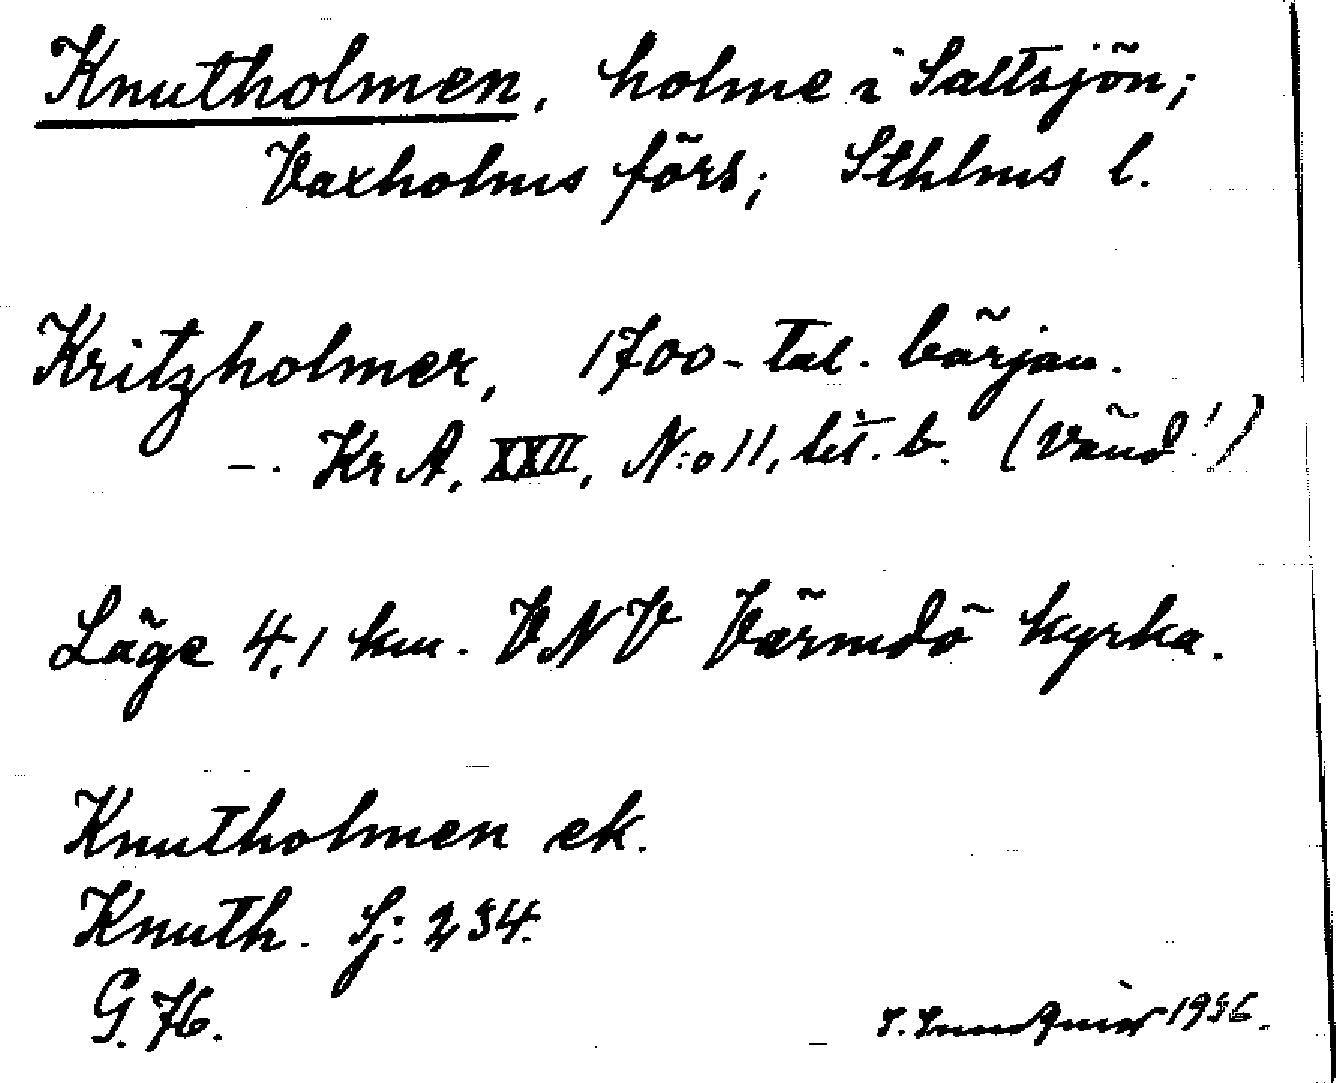 Knutholmen, holme i Saltsjön;
Vaxholms förs; Sthlms l.
Kritzholmer, 1700-tal. början.
-. Kr A, XXII, N:o 11, lit. b. (vänd!)
Läge 4,1 km. VNV Värmdö kyrka.
Knutholmen ek.
Knuth. Sj: 234.
G. 76.
1936.